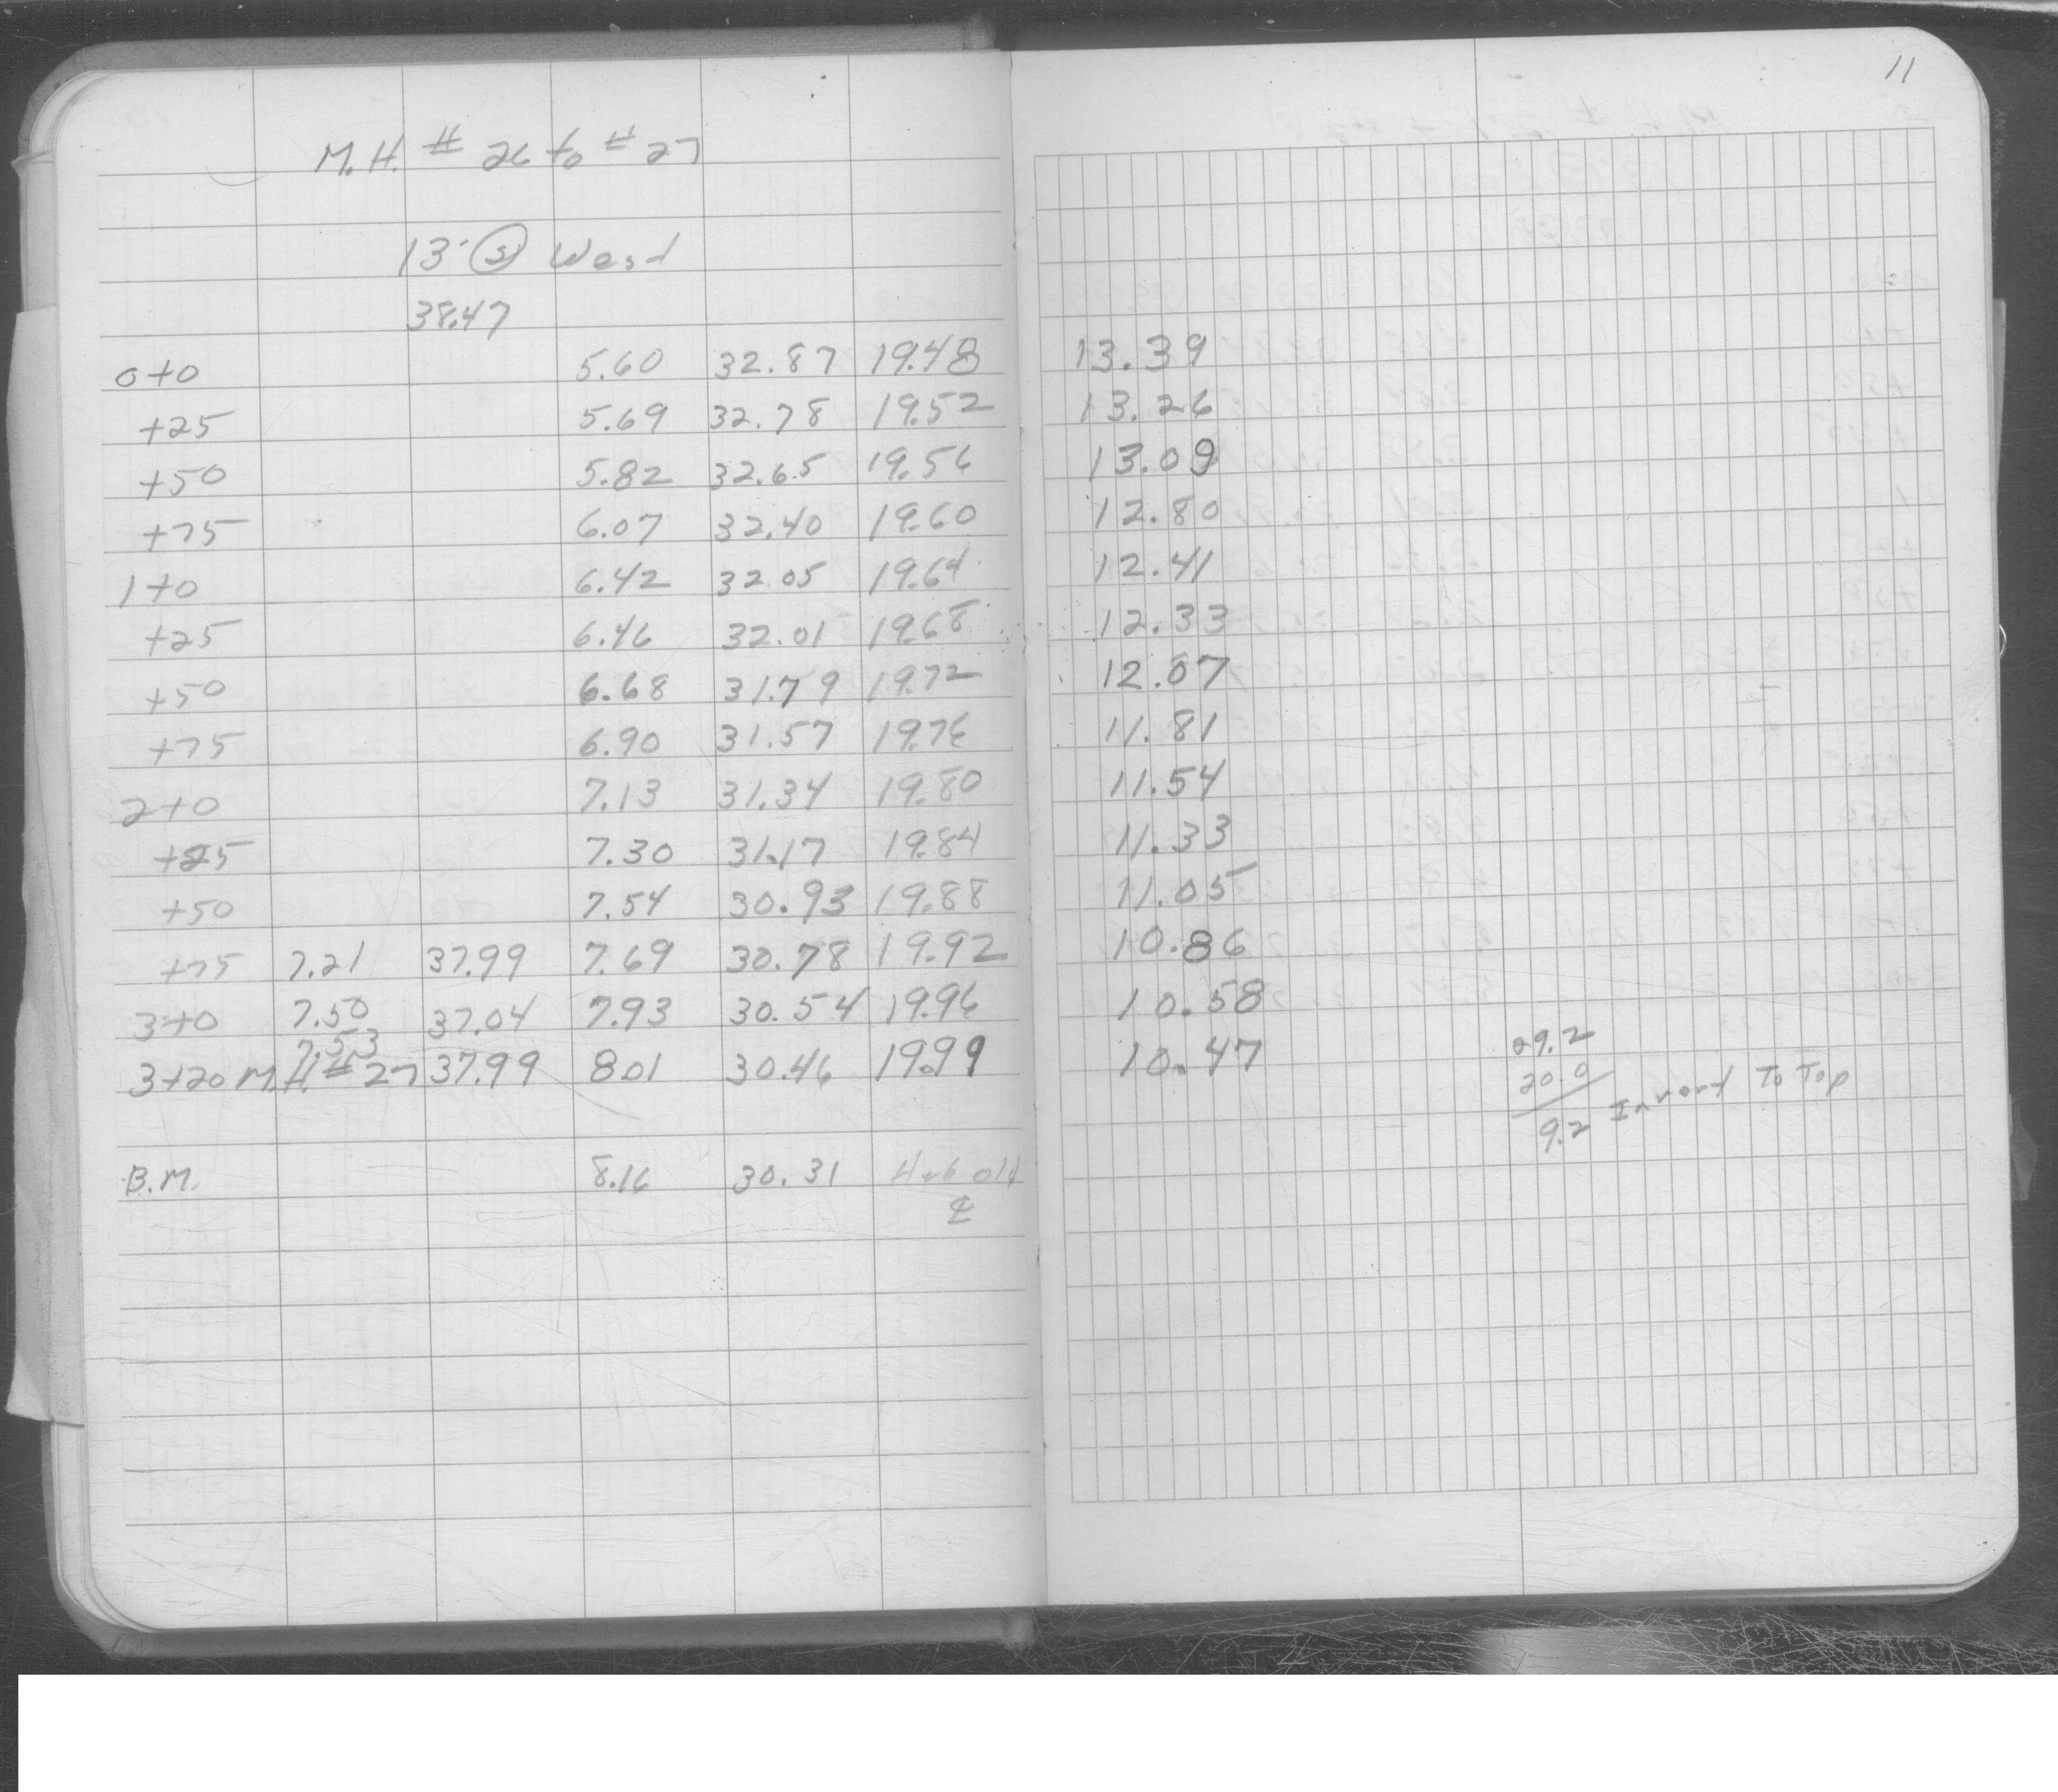 11
M.H. # 26 to # 27
13' (S) West
38.47
0+0 5.60 32.87 19.48 13.39
+25 5.69 32.78 19.52 13.26
+50 5.82 32.65 19.56 13.09
+75 6.07 32.40 19.60 12.80
1+0 6.42 32.05 19.64 12.41
+25 6.46 32.01 19.68 12.33
+50 6.68 31.79 19.72 12.07
+75 6.90 31.57 19.76 11.81
2+0 7.13 31.34 19.80 11.54
+25 7.30 31.17 19.84 11.33
+50 7.54 30.93 19.88 11.05
+75 7.21 37.99 7.69 30.78 19.92 10.86
3+0 7.50 37.04 7.93 30.54 19.96 10.58
7.53
3+20 M.H. # 27 37.99 8.01 30.46 19.99 10.47
29.2
20.0
9.2 Invert To Top
B.M. 8.16 30.31 Hub old
℄